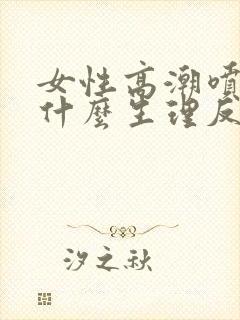 女性高潮噴
什麼生理反
汐之秋